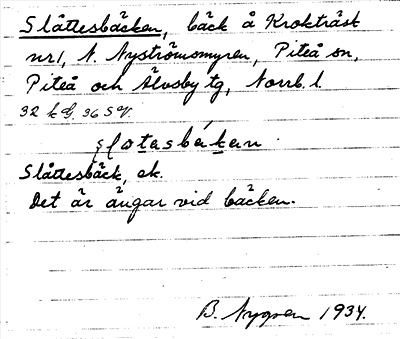 Slåttesbäcken, bäck å Krokträsk
nr 1, N. Nyströmsmyren, Piteå sn,
Piteå och Älvsby tg, Norrb. l.
32 kG. 36 SV.
Slåttesbäck, ek.
Det är ängar vid bäcken.
B. Nygren 1934.